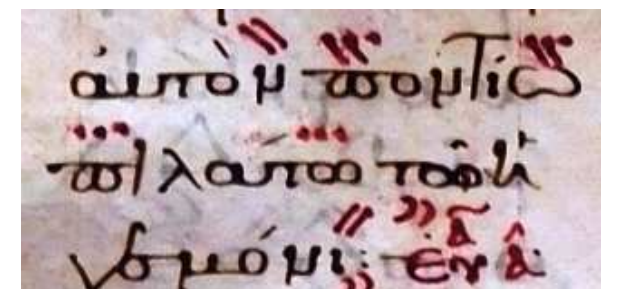 αὐτὸν ποντίω
πιλατω τῶ ἡ
γεμόνι: